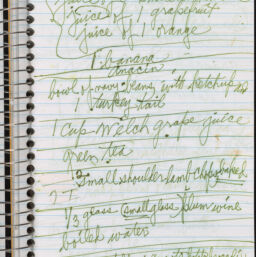 juice of 1 grapefruit
juice of 1 orange
1 banana
anacin
bowl of navy beans with ketchup
1 turkey tail
1 cup Welch grape juice
green tea
2 small shoulder lamb chops baked
1/3 glass (small glass) plum wine
boiled water